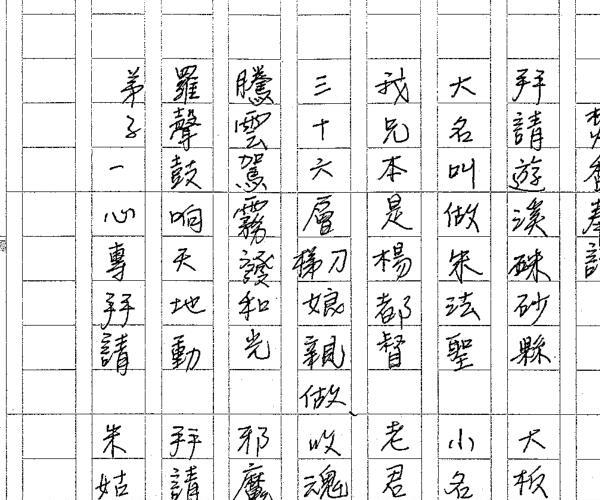 焚香奉請
拜請遊溪硃砂縣 大板
大名叫做朱法聖 小名
我兄本是楊都督 老君
三十六層刀梯娘親做 收魂
騰雲駕霧發和光 邪魔
羅聲鼓响天地動 拜請
弟子一心專拜請 朱姑